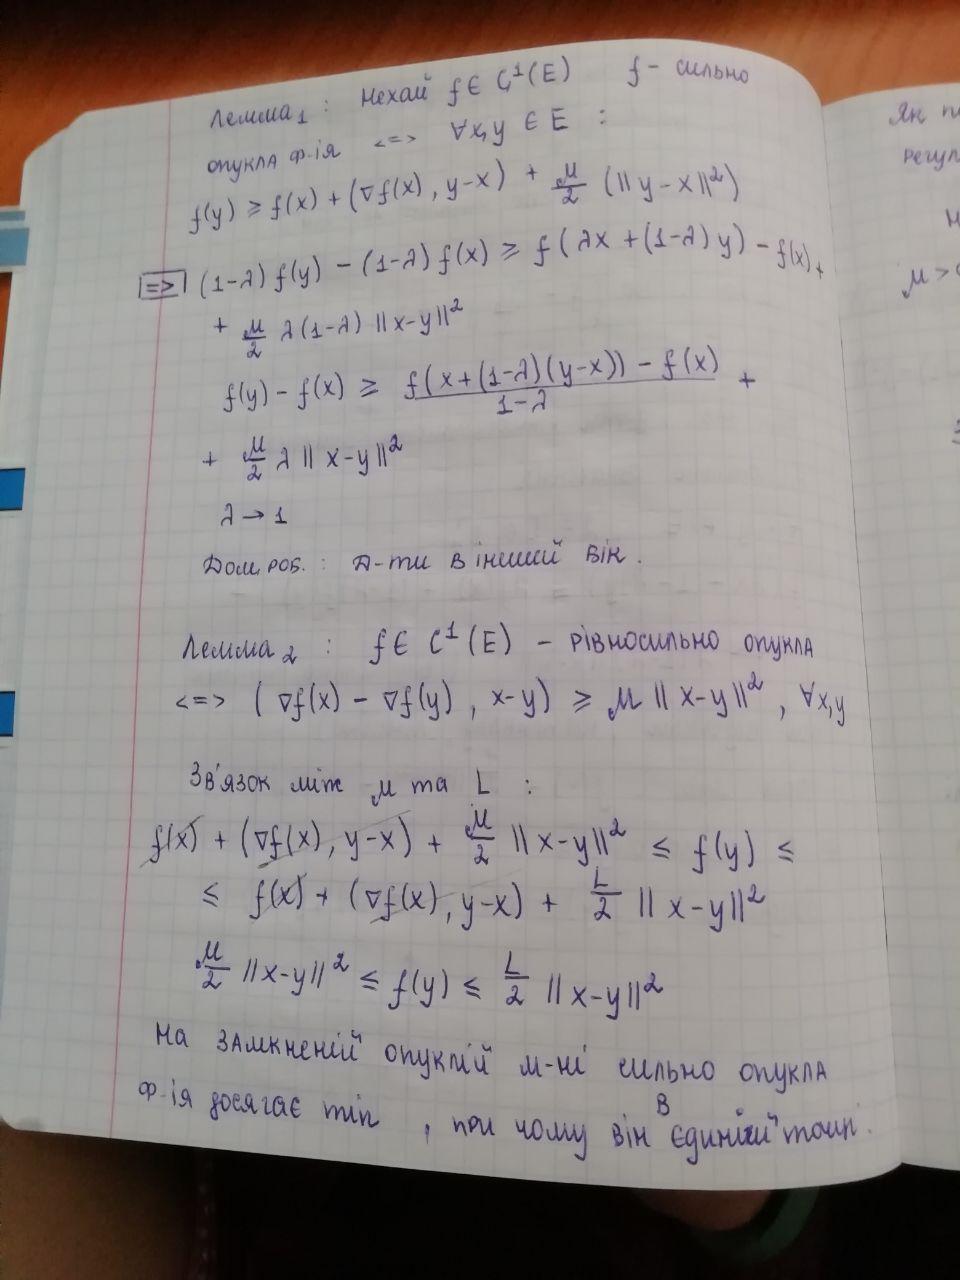 Лемма 1 : Нехай f ∈ C¹(E) f - сильно
опукла ф-ія <=> ∀x,y ∈ E :
f(y) ≥ f(x) + (∇f(x), y-x) + μ/2 (||y-x||²)
=> (1-λ) f(y) - (1-λ) f(x) ≥ f(λx + (1-λ)y) - f(x) +
+ μ/2 λ(1-λ) ||x-y||²
f(y) - f(x) ≥ f(x+(1-λ)(y-x)) - f(x) / 1-λ +
+ μ/2 λ ||x-y||²
λ → 1
Дом. роб. : Д-ти в інший бік.
Лемма 2 : f ∈ C¹(E) - рівносильно опукла
<=> (∇f(x) - ∇f(y), x-y) ≥ μ ||x-y||², ∀x,y
Зв'язок між μ та L :
f(x) + (∇f(x), y-x) + μ/2 ||x-y||² ≤ f(y) ≤
≤ f(x) + (∇f(x), y-x) + L/2 ||x-y||²
μ/2 ||x-y||² ≤ f(y) ≤ L/2 ||x-y||²
На замкненій опуклій м-ні сильно опукла
ф-ія досягає min, при чому він в єдиній точці.
Як
μ >